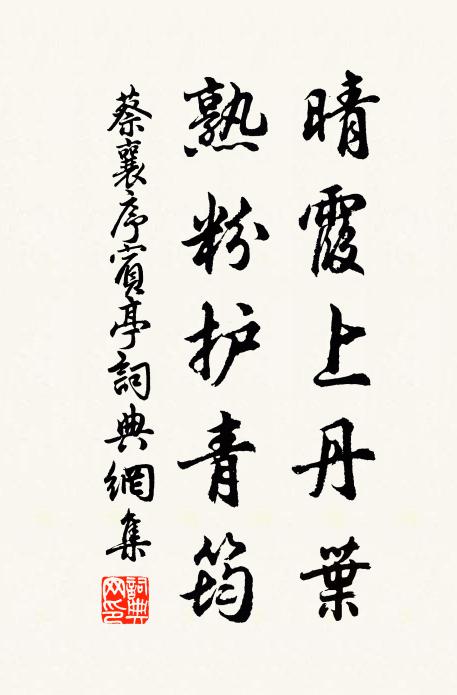 晴霞上丹葉
熟粉护青筠
蔡襄序賓亭詞典網集
詞典網印